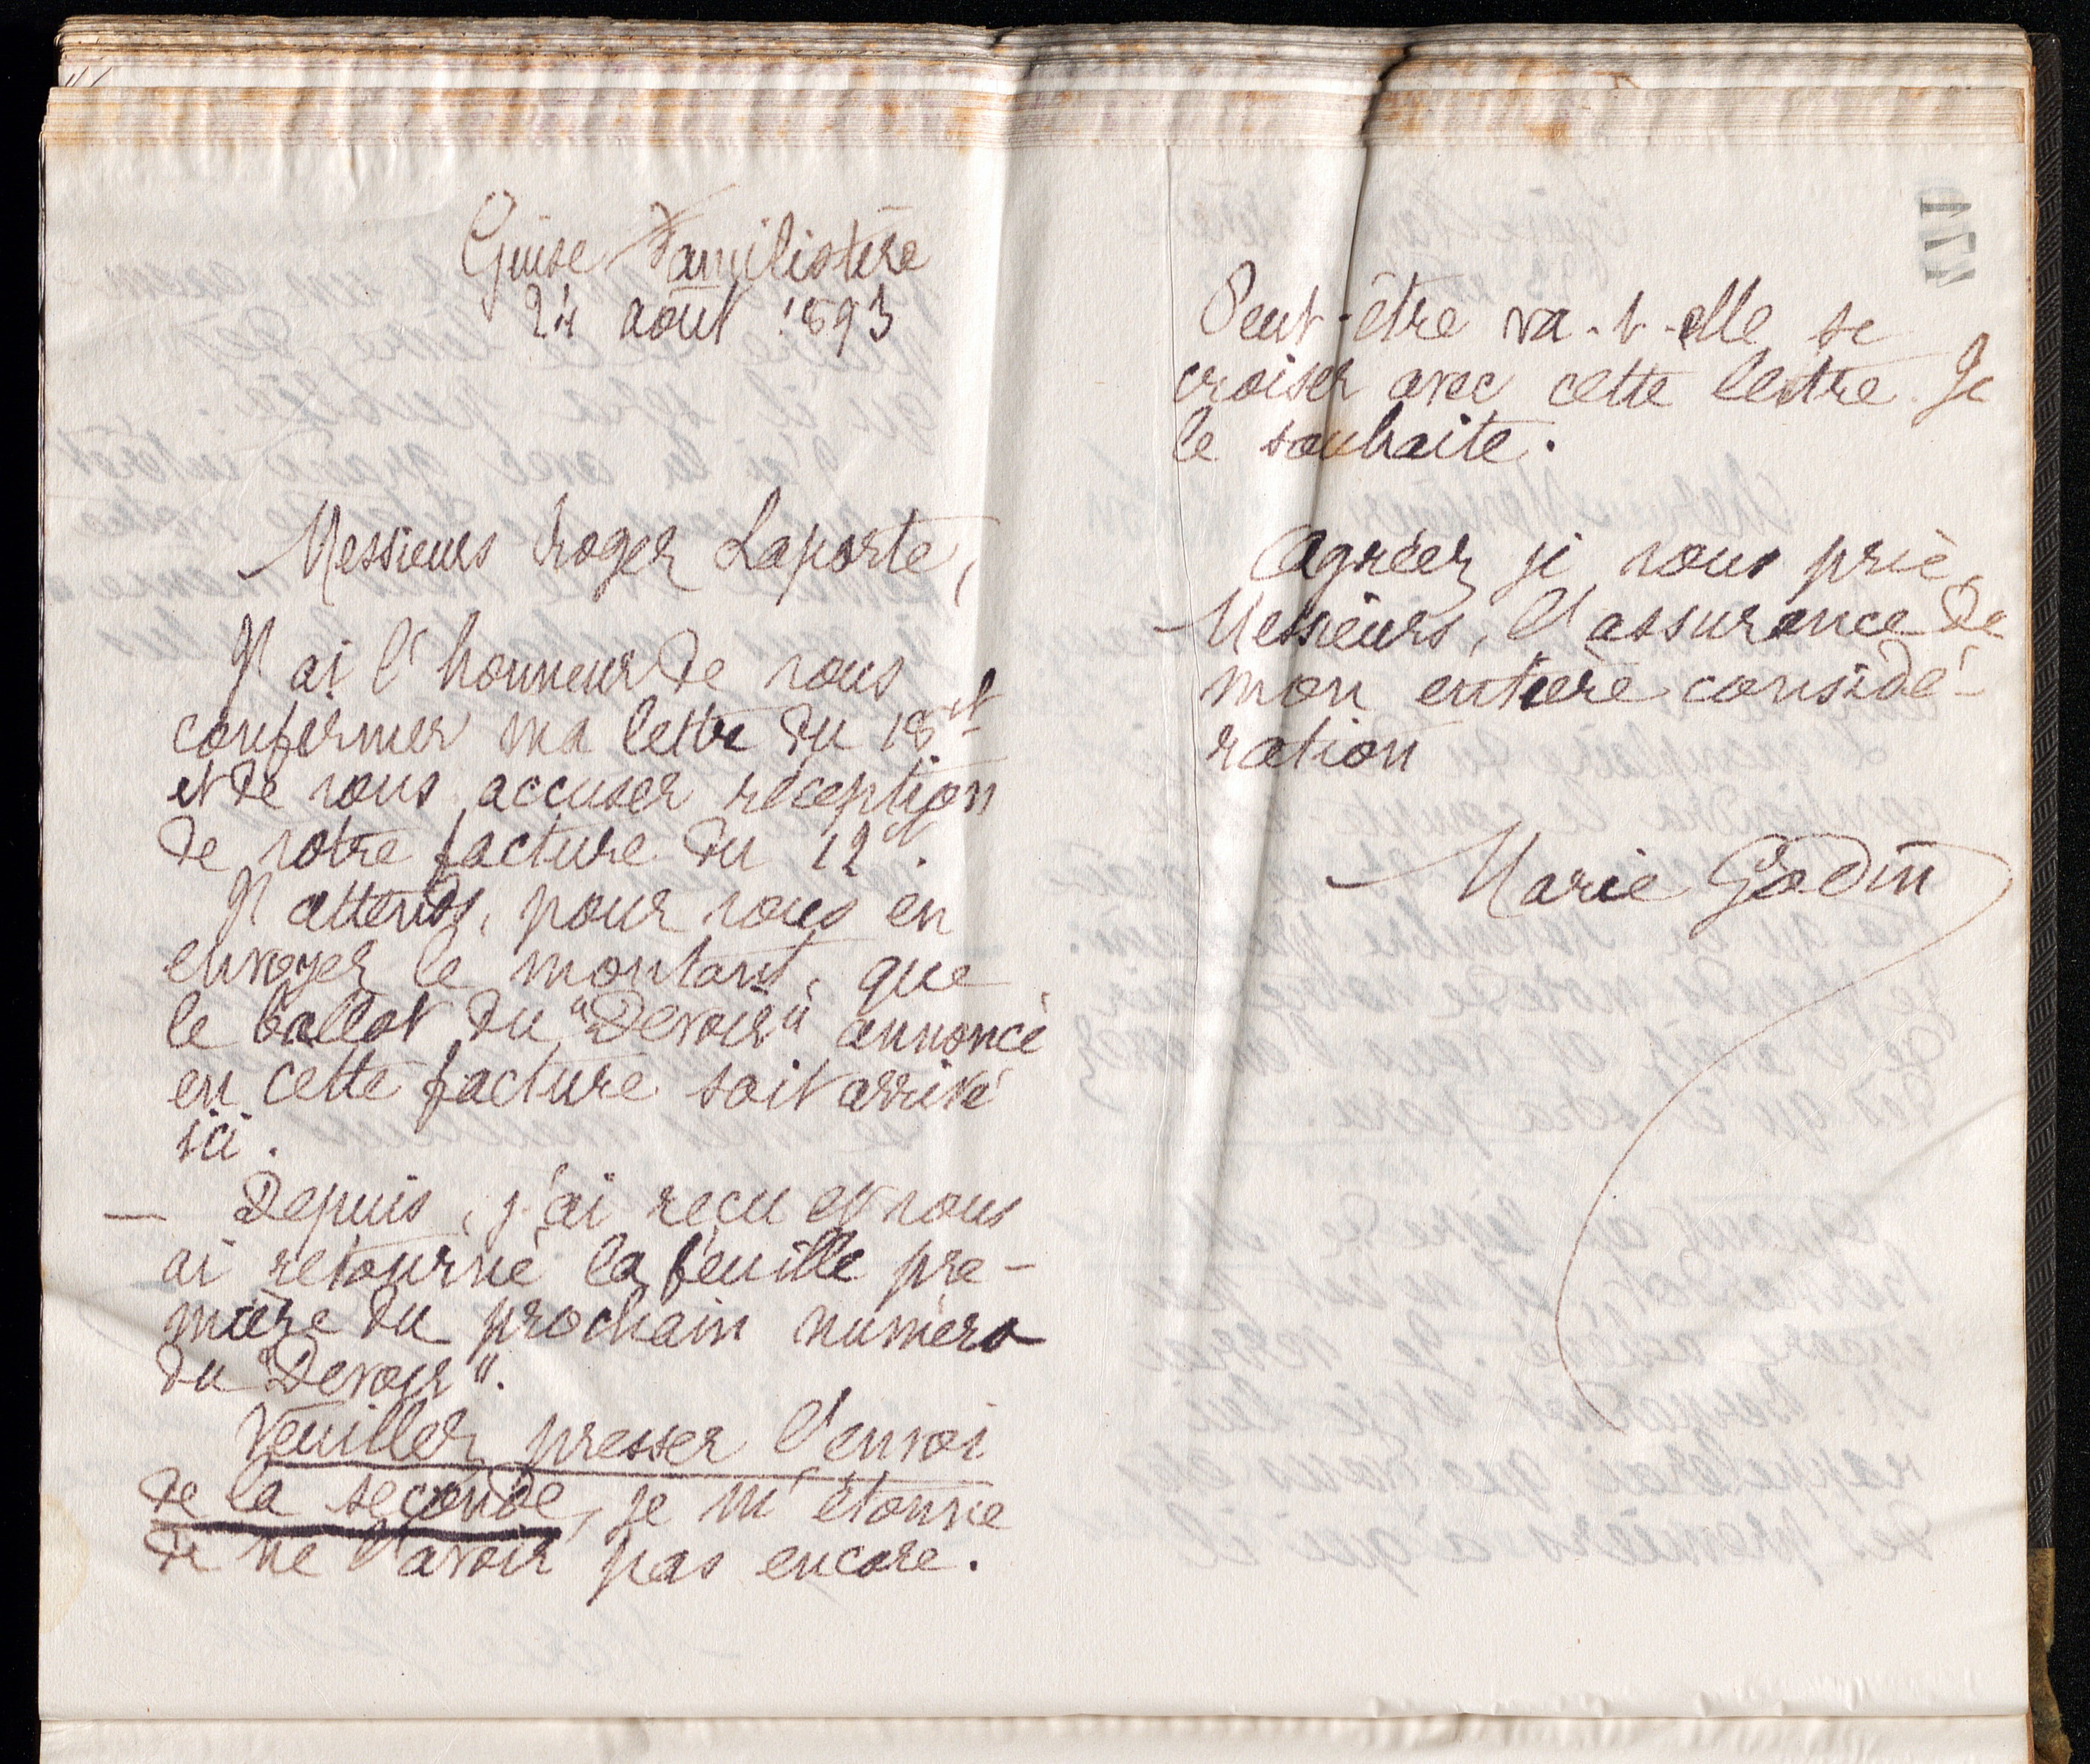 Guise Familistère
24 août 1893
Messieurs Roger Laporte,
J'ai l'honneur de vous
confirmer ma lettre du 18 ct
et de vous accuser réception
de votre facture du 12 ct.
J'attends, pour vous en
envoyer le montant, que
le ballot du "Devoir" annoncé
en cette facture soit arrivé
ici.
— Depuis, j'ai reçu et vous
ai retourné la feuille pre-
mière du prochain numéro
du "Devoir".
Veuillez presser l'envoi
de la seconde, je m'étonne
de ne l'avoir pas encore.
Peut-être va-t-elle se
croiser avec cette lettre. Je
le souhaite.
Agréez, je vous prie,
Messieurs, l'assurance de
mon entière considé-
ration
Marie Godin